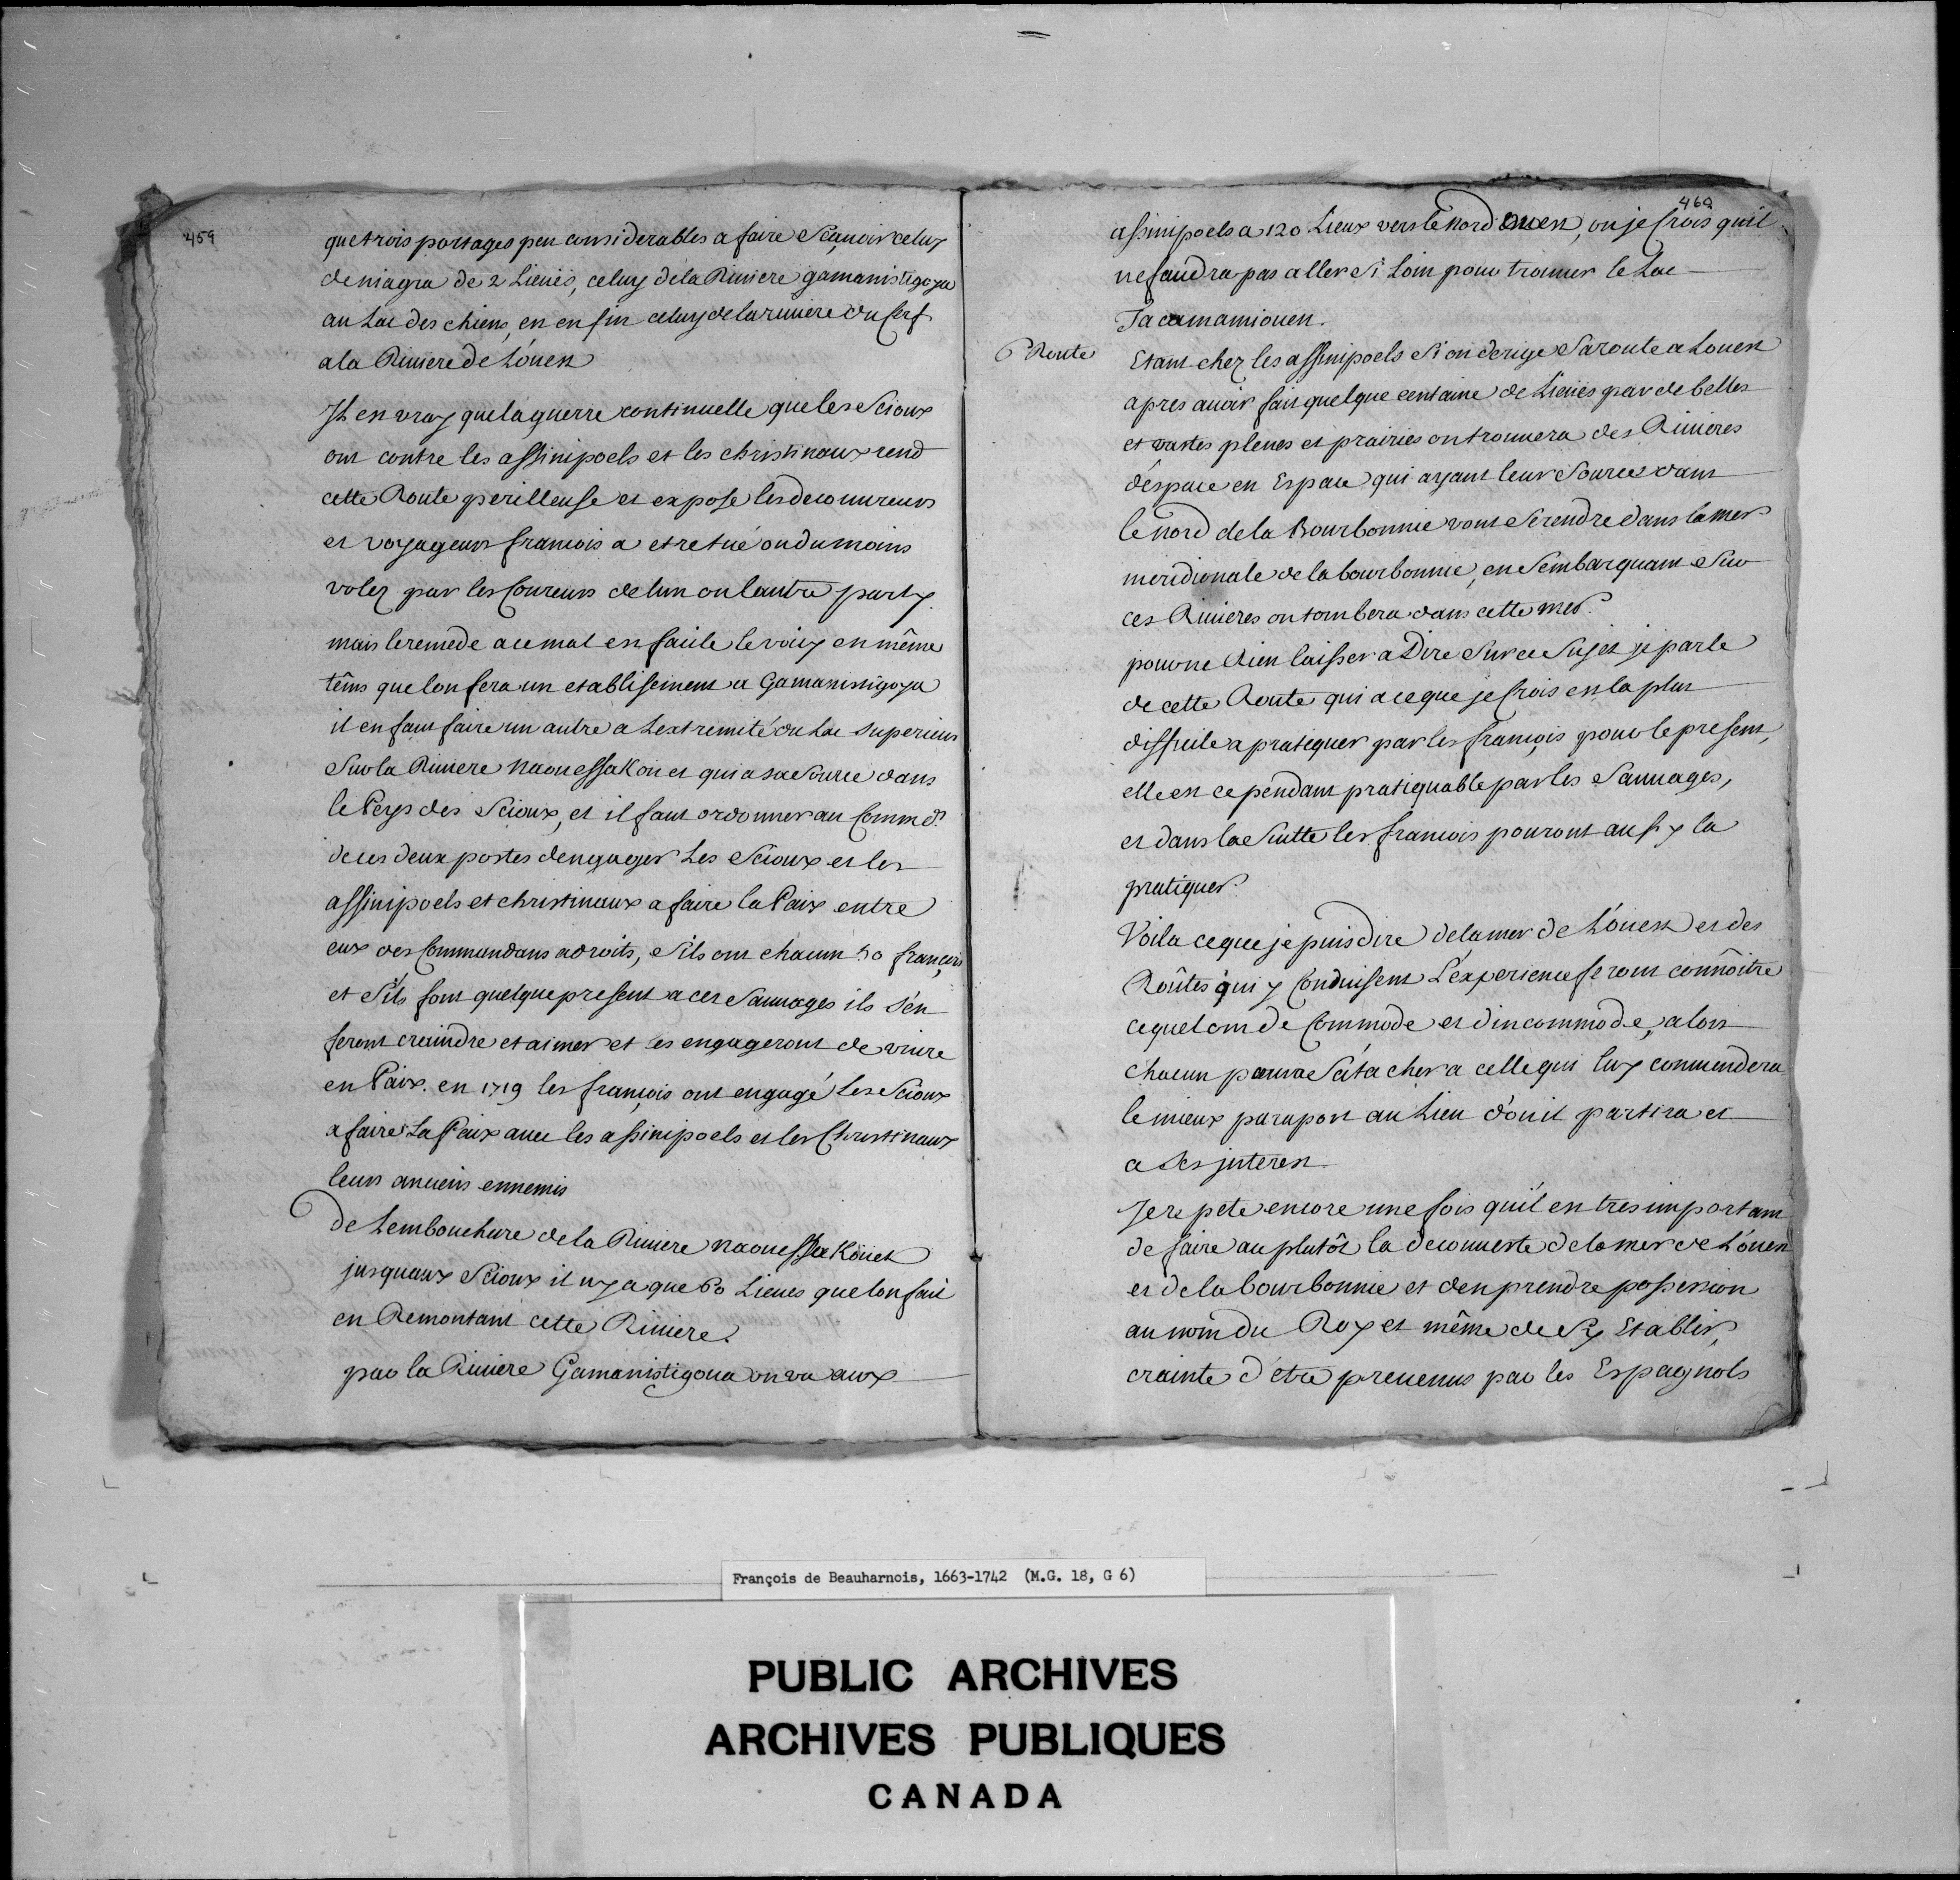 459
que trois portages peu considerables a faire Scavoir celuy
de niagra de 2 Lieües, celuy de la Riviere gamanistigoya
au Lac des chiens, en en fin celuy de la riviere du Cerf
a la Riviere de L'ouest
Il est vray que la guerre continuelle que les Scioux
ont contre les assinipoels et les christinaux rend
cette Route perilleuse et expose les decouvreurs
et voyageurs francois a etre tué ou du moins
volez par les Coureurs de lun ou lautre party.
mais le remede a ce mal est facile le voicy en même
têms que lon fera un etablissement a Gamanistigoya
il en faut faire un autre a Lextremité du Lac Superieur
Sur la Riviere Naouessakouet qui a sa Source dans
le Peys des Scioux, et il faut ordonner au Commdt
de ces deux postes dengager Les Scioux et les
assinipoels et christinaux a faire la Paix entre
eux des Commandans adroits, Sils ont chacun 50 francois
et S'ils font quelque present a ces Sauvages ils s'en
feront craindre et aimer et les engageront de vivre
en Paix. en 1719 les francois ont engagé Les Scioux
a faire La Paix avec les assinipoels et les Christinaux
leurs anciens ennemis
de Lembouchure de la Riviere naouessakouet
jusquaux Scioux il ny a que 60 Lieues que lon fait
en Remontant cette Riviere.
par la Riviere Gamanistigoua on va aux
460
assinipoels a 120 Lieux vers le Nord Ouest, ou je Crois quil
ne faudra pas aller Si Loin pour trouver le Lac
Tacamamiouen.
Route
Etant chez les assinipoels Si on derige Sa route a Louest
apres avoir fait quelque centaine de Lieües par de belles
et vastes plenes et prairies on trouvera des Rivieres
d'espace en Espace qui ayant leur Source dans
le Nord de la Bourbonnie vont Se rendre dans la mer
meridionale de la bourbonnie, en Sembarquant Sur
ces Rivieres on tombera dans cette mer.
pour ne Rien laisser a Dire Sur ce Sujet je parle
de cette Route qui a ce que je Crois est la plus
difficile a pratiquer par les francois pour le present,
elle est cependant pratiquable par les Sauvages,
et dans la Suitte les francois pouront aussy la
pratiquer.
Voila ce que je puis dire de la mer de L'ouest et des
Roûtes qui y Conduisent L'experience feront connôitre
ce quel ont de Commode et dincommode, alors
chacun poura S'atacher a celle qui luy conviendera
le mieux par aport au Lieu d'ou il partira et
a Ses jnterest
Je repete encore une fois qu'il est tres important
de faire au plutôt la decouverte de la mer de L'ouest
et de la bourbonnie et den prendre possession
au nom du Roy et même de Sy Etablir,
crainte d'etre prevenus par les Espagnols
François de Beauharnois, 1663-1742 (M.G. 18, G 6)
PUBLIC ARCHIVES
ARCHIVES PUBLIQUES
CANADA